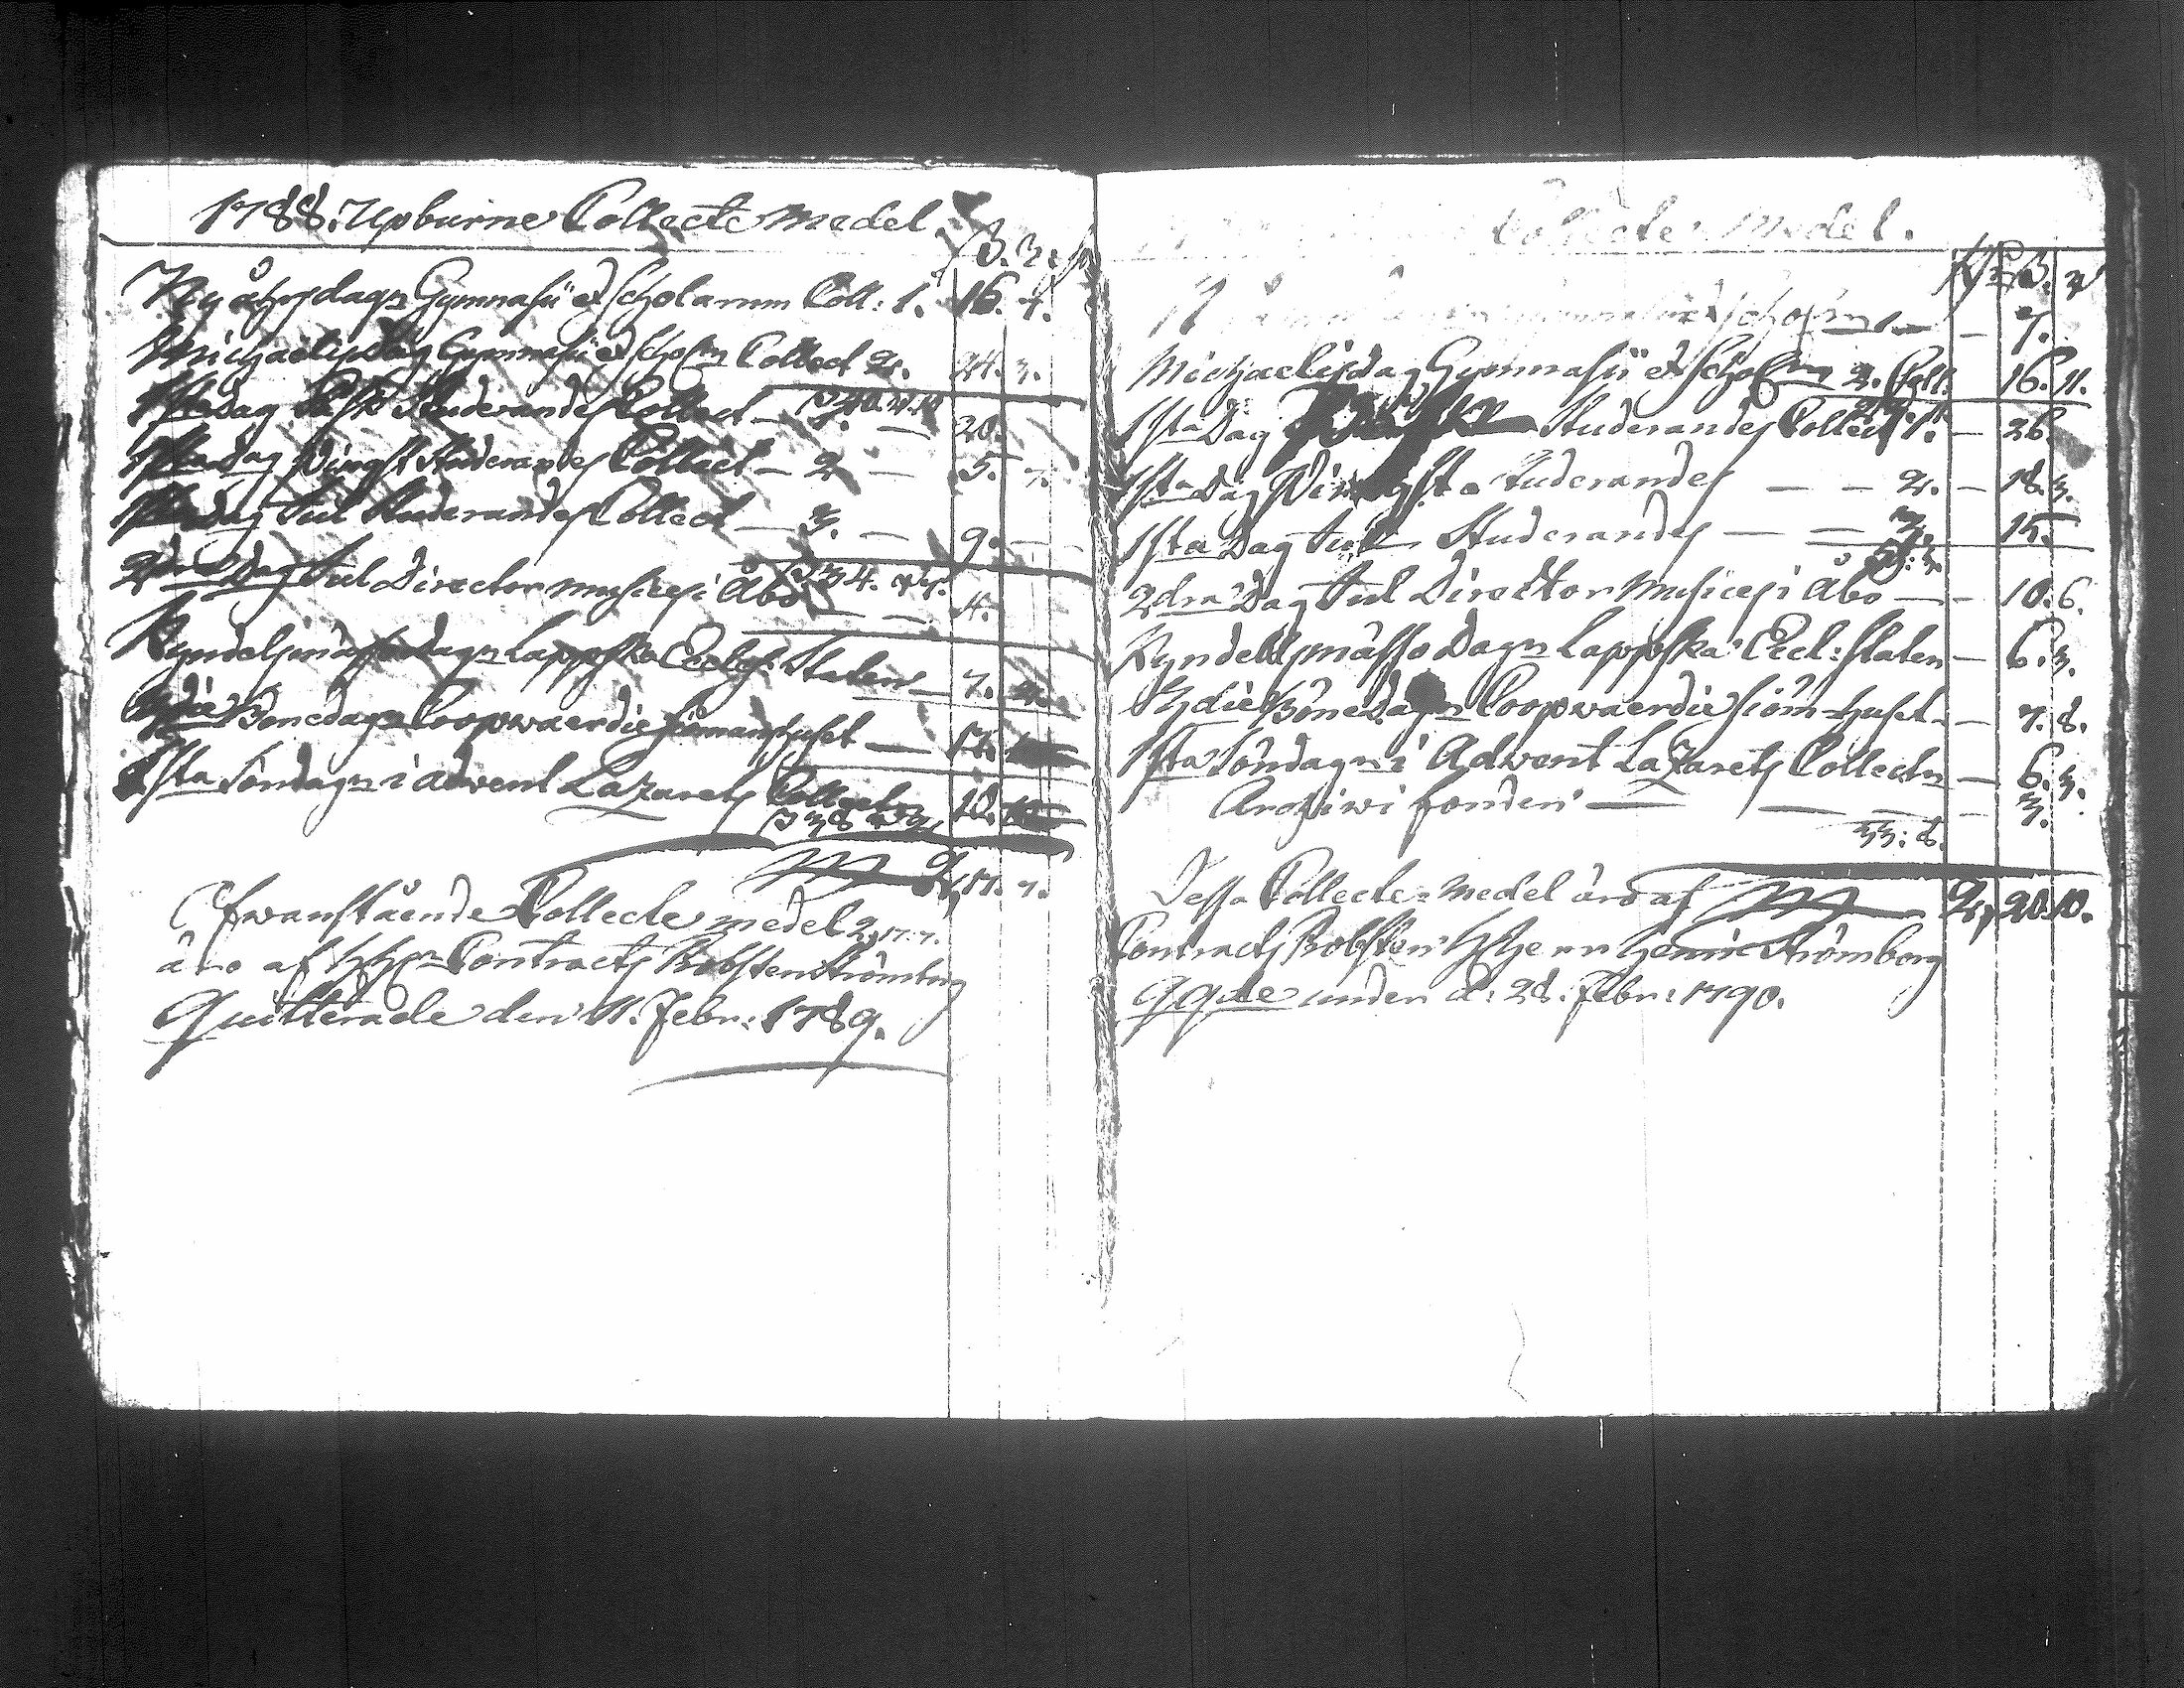 1788. Upburne Collecte Medel.
ß. r.
Nyåhrsdagn Gymnasii et Scholarum Coll: 1. 16. 7.
Michaelis Dag Gymnasii et Scholrn Collect 2. 24. 3.
1sta dag Påsk Studerandes Collect — 1. — 20.
1sta Dag Pingst Studerandes Collect — 2 — 5. 7.
1sta dag Jul Studerandes Collect — 3. — 9. —
34.
2dra Dag Jul Director Musices i Åbo — — 4.
Kyndelsmässodagn Lappska Eccles: Staten — 7.
3die Bönedagn Coopvaerdie Siömanshuset —
1sta Söndagn i Advent Lazarets Collectn 10.
2, 17. 7.
Ofwanstående Collecte medel 2, 17. 7.
äro af HHrn Contracts Probsten Strömborg
Quitterade den 11. Febr: 1789.
Collecte Medel.
ß.
Scholrn 1 — — 7.
Michaelisdag Gymnasii et Scholrn 2. Coll: 16. 11.
1sta Dag Studerandes Collect 1. — 26.
1sta Dag Pingst Studerandes — — 2. — 18. 3.
1sta Dag Jul Studerandes — — 3. 15.
2dra Dag Jul Director Musices i Åbo — — 10. 6.
Kyndellsmässo Dagn Lappska Eccl: Staten — 6. 3.
3die Bönedagn Coopvaerdie Siöm-huset — — 7. 8.
1sta Söndagn i Advent Lazarets Collectn — 6. 3.
Archivi fonden — — — 3.
33: 8.
Dessa Collecte-Medel äro af 2, 20. 10.
Contracts Probsten HHerr Henric Strömborg
qqde under d: 28. Febr: 1790.